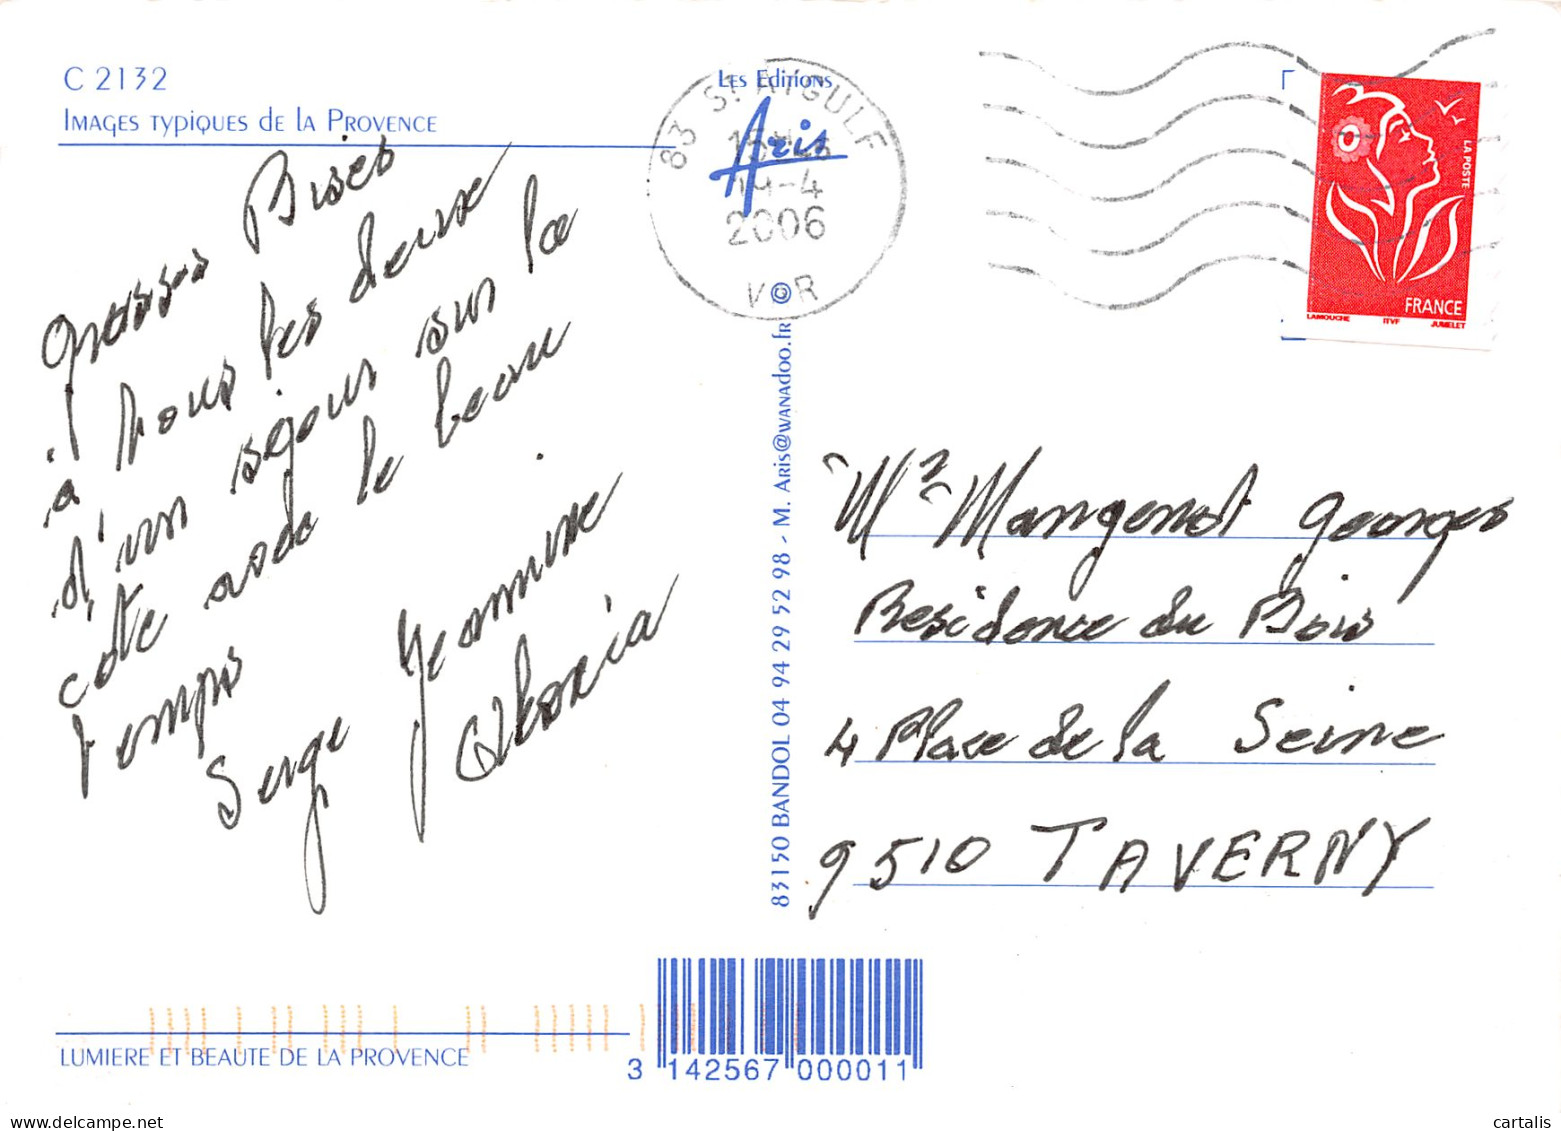 C 2132
Images typiques de la Provence
Grosses Bises
à nous les deux
d'un séjour sur la
cote avec le beau
temps
Serge Jeannine
Les Editions
Aris
83 ST AYGULF
19-4
2006
VAR
©
83150 BANDOL 04 94 29 52 98 - M. Aris@wanadoo.fr
LA POSTE
FRANCE
LAMOUCHE ITVF JUMELET
Mr Mangenot Georges
Residence du Bois
4 Place de la Seine
9510 TAVERNY
LUMIERE ET BEAUTE DE LA PROVENCE
3 142567 000011
cartalis
www.delcampe.net